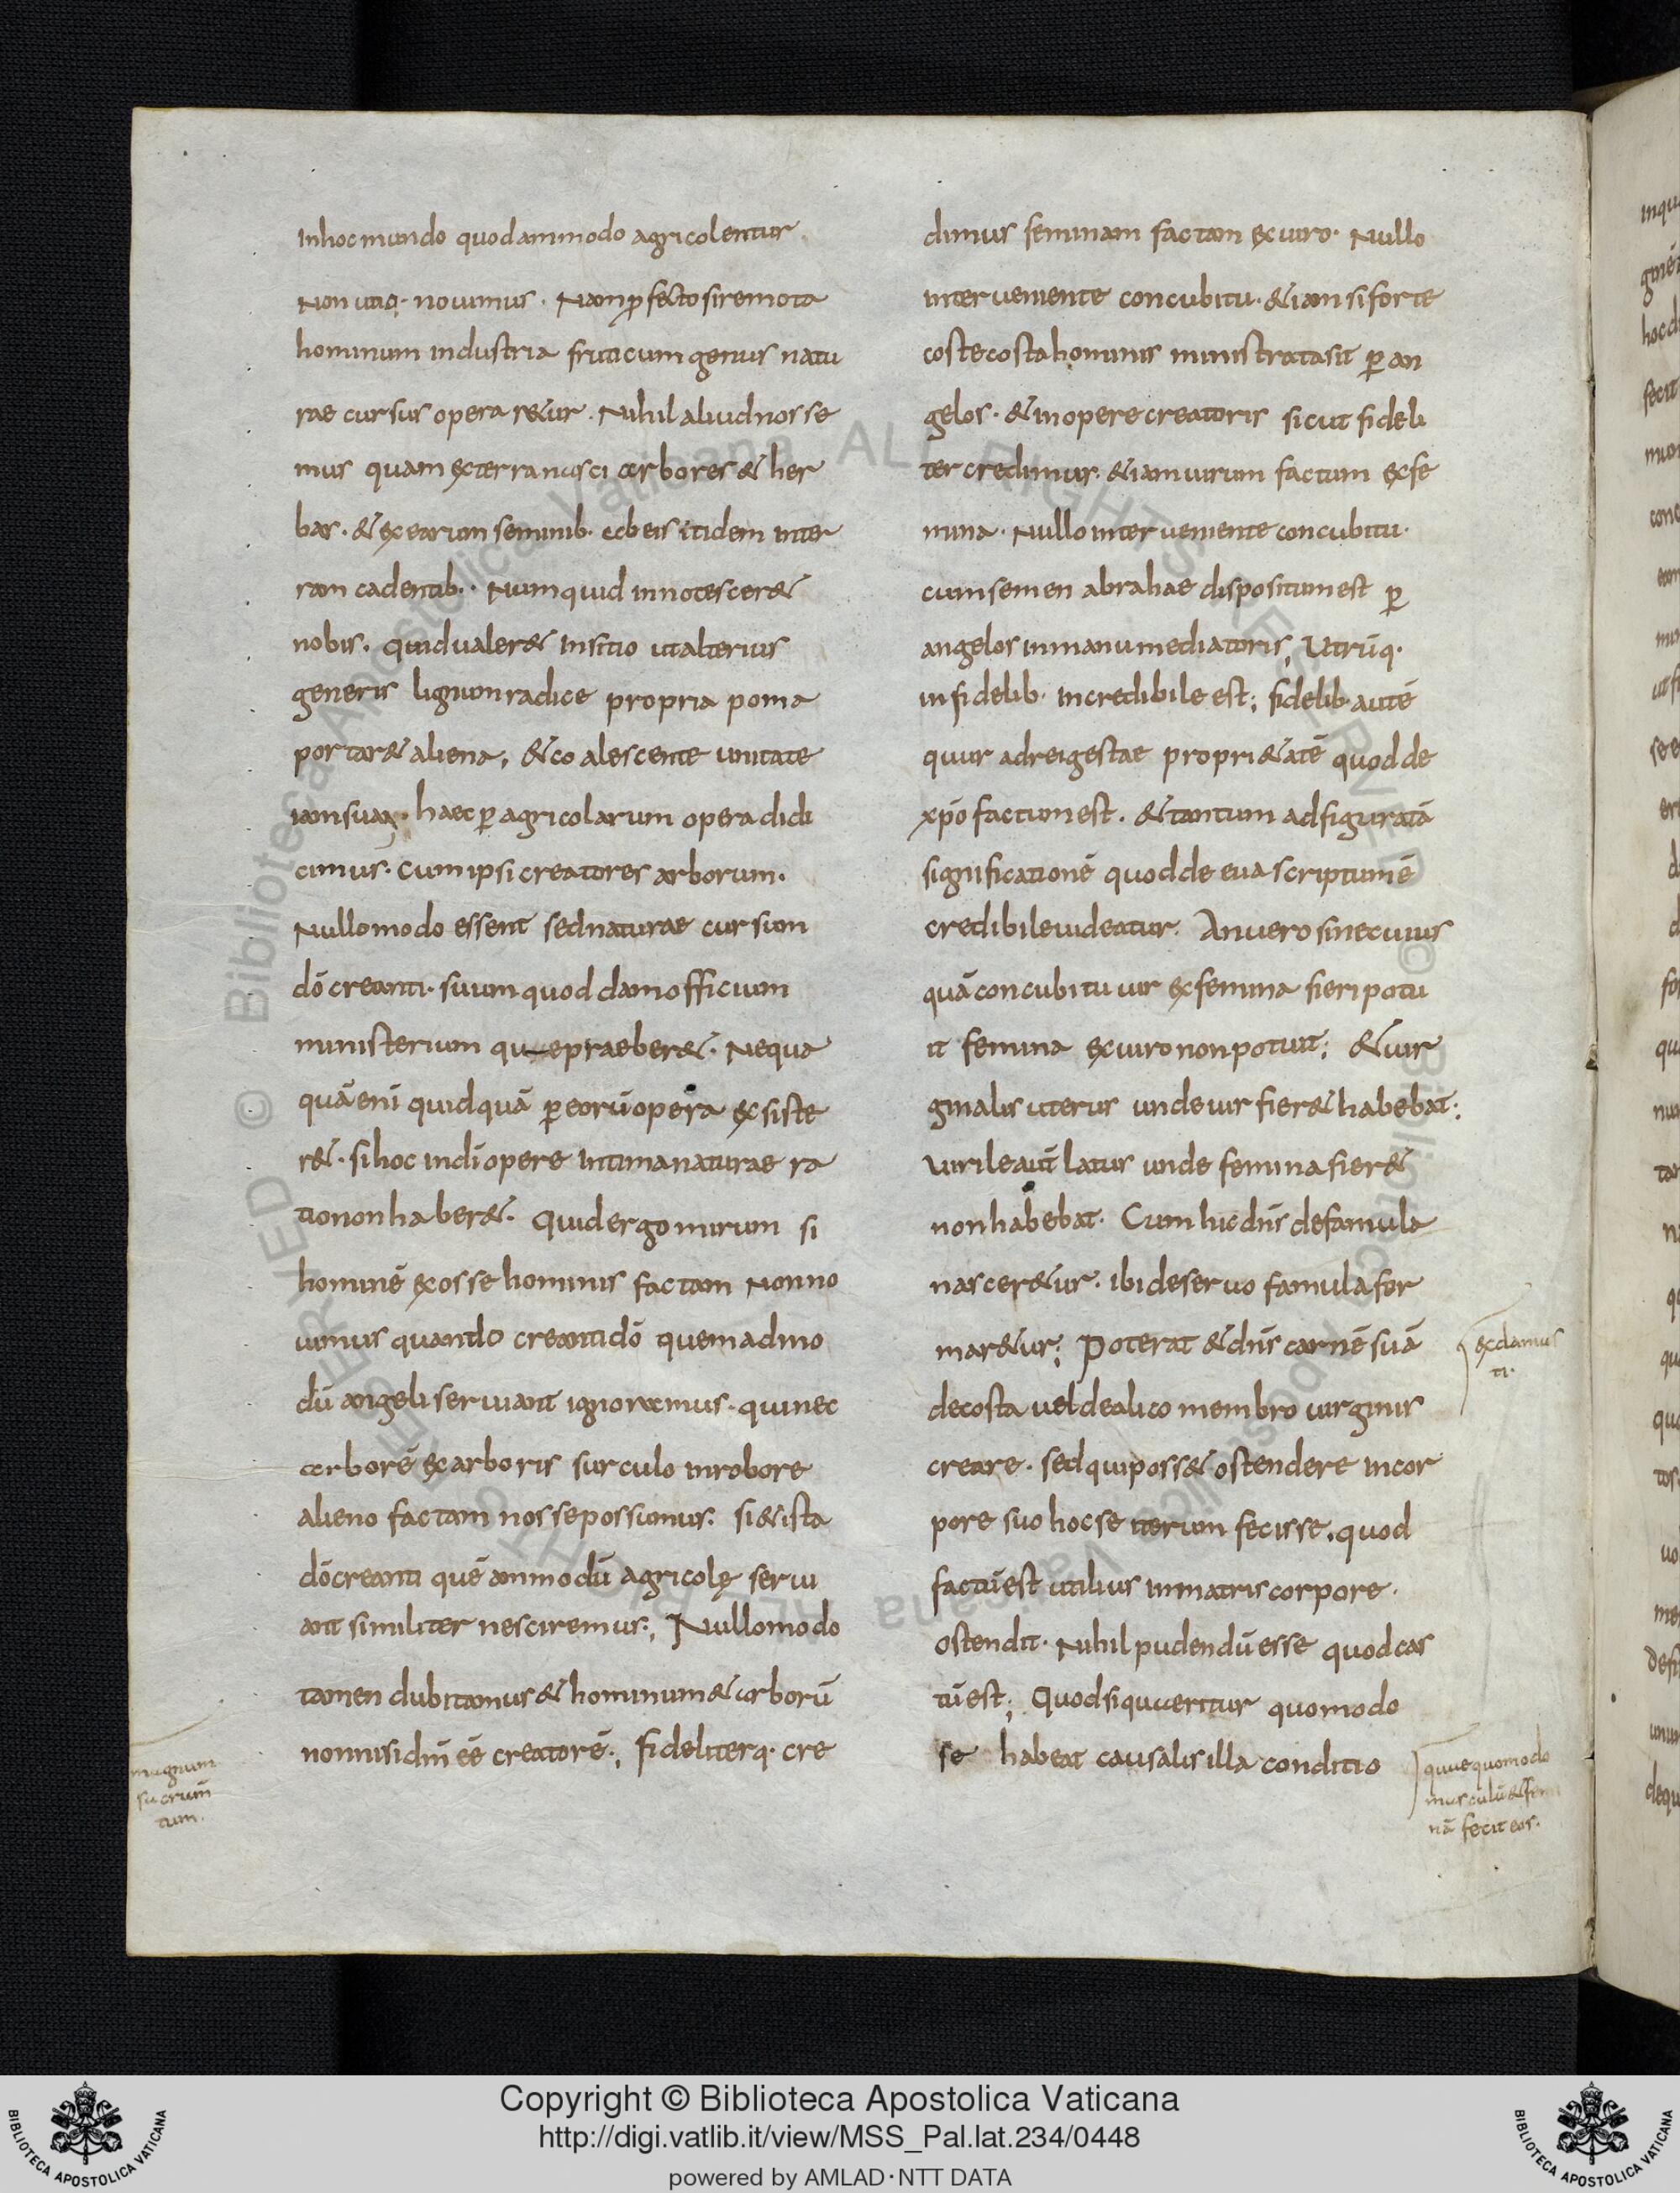 Inhocmundo quodammodo agricolentur
Non utiq; nouimus. Nam ꝓfecto siremota
hominum industria fruticum genus natu
rae cursus opera r&ur. Nihil aliud nosse
mus quam exterra nasci arbores & her
bas. & ex earum seminib. ab eis itidem inter
ram cadentib. Numquid innotescer&
nobis. quid ualer& insitio utalterius
generis lignum radice propria poma
portar& aliena. & coalescente unitate
iam sua. haec ꝑ agricolarum opera didi
cimus. cum ipsi creatores arborum.
Nullomodo essent sed naturae cursum
dō creanti. suum quoddam officium
ministerium quae praeber&. Nequa
quā eni quidquā ꝑ eorū opera exsiste
r&. si hoc indī opere intima naturae ra
tio non haber&. Quid ergo mirum si
hominē ex osse hominis factam Non no
uimus quando creanti dō quemadmo
dū angeli seruiant ignoramus. qui nec
arborē ex arboris surculo in robore
alieno factam nosse possumus. si & ista
dō creanti quē ammodū agricolę serui
ant similiter nesciremus; Nullomodo
tamen dubitamus & hominum & arborū
non nisi dm̄ eē creatorē; fideliterq. cre
magnum
sacrum
tum.
dimus feminam factam ex uiro. Nullo
interueniente concubitu. & iam si forte
coste costa hominis ministrata sit ꝑ an
gelos. & in opere creatoris sicut fideli
ter credimus. & iam uirum factum ex fe
mina. Nullo interueniente concubitu.
cum semen abrahae dispositum est ꝑ
angelos in manu mediatoris, Utrūq.
infidelib. incredibile est; fidelib. autē
quur adrei gestae propri&atē quod de
xpō factum est. & tantum ad figuratā
significationē quod de eua scriptum ē
credibile uideatur. An uero sine cuius
quā concubitu uir ex femina fieri potu
it femina ex uiro non potuit; & uir
ginalis uterus unde uir fier& habebat;
uirile aut̄ latus unde femina fier&
non habebat. Cum hic dn̄s de famula
nascer&ur. ibi de seruo famula for
mar&ur; Poterat & dn̄s carnē suā
de costa uel de alico membro uirginis
creare. sed qui poss& ostendere in cor
pore suo hoc se iterum fecisse. quod
factū est utilius in matris corpore.
ostendit. Nihil pudendū esse quod cas
tū est; Quod si quaeritur quomodo
se habeat causalis illa conditio
quae quomodo
masculū & femi
nā fecit eos.